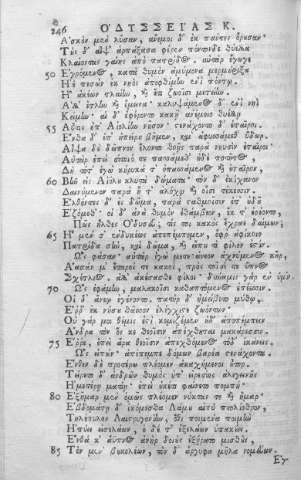 246 ΟΔΥΣΣΕΙΑΣ Κ.
Ἀσκὸν μὲν λῦσαν, ἄνεμοι δ' ἐκ πάντες ὄρυσαν·
Τοὺς δ' αἶψ' ἁρπάξασα φέρεν πόντονδε θύελλα
Κλαίοντας γαίης ἄπο πατρίδος· αὐτὰρ ἔγωγε
50 Ἐγρόμενος, κατὰ θυμὸν ἀμύμονα μερμήριξα
Ἠὲ πεσὼν ἐκ νηὸς ἀποφθίμην ἐνὶ πόντῳ,
Ἦ ἀκέων τλαίην, καὶ ἔτι ζωοῖσι μετείην.
Ἀλλ' ἔτλην καὶ ἔμεινα· καλυψάμενος δ' ἐνὶ νηῒ
Κείμην· αἱ δ' ἐφέροντο κακῇ ἀνέμοιο θυέλλῃ
55 Αὖθις ἐπ' Αἰολίην νῆσον· στενάχοντο δ' ἑταῖροι.
Ἔνθα δ' ἐπ' ἠπείρου βῆμεν, καὶ ἀφυσσάμεθ' ὕδωρ.
Αἶψα δὲ δεῖπνον ἕλοντο θοῇς παρὰ νηυσὶν ἑταῖροι.
Αὐτὰρ ἐπεὶ σίτοιό τε πασσάμεθ' ἠδὲ ποτῆτος,
Δὴ τότ' ἐγὼ κήρυκά τ' ὀπασσάμενος καὶ ἑταῖρον,
60 Βῆν εἰς Αἰόλου κλυτὰ δώματα· τὸν δ' ἐκίχανον
Δαινύμενον παρὰ ᾗ τ' ἀλόχῳ καὶ οἷσι τέκεσσιν.
Ἐλθόντες δ' ἐς δῶμα, παρὰ σταθμοῖσιν ἐπ' οὐδοῦ
Ἑζόμεθ'· οἱ δ' ἀνὰ θυμὸν ἐθάμβεον, ἔκ τ' ἐρέοντο,
Πῶς ἦλθες Ὀδυσεῦ; τίς τοι κακὸς ἔχραε δαίμων;
65 Ἦ μέν σ' ἐνδυκέως ἀπεπέμπομεν, ὄφρ' ἀφίκοιο
Πατρίδα σὴν, καὶ δῶμα, καὶ εἴ που τοι φίλον ἐστίν.
Ὣς φάσαν· αὐτὰρ ἐγὼ μετεφώνεον ἀχνύμενος κῆρ,
Ἄασάν μ' ἕταροί τε κακοὶ, πρὸς τοῖσί τε ὕπνος
Σχέτλιος, ἀλλ' ἀκέσασθε φίλοι· δύναμις γὰρ ἐν ὑμῖν.
70 Ὣς ἐφάμην, μαλακοῖσι καθαπτόμενος ἐπέεσσιν.
Οἱ δ' ἄνεῳ ἐγένοντο. πατὴρ δ' ἠμείβετο μύθῳ,
Ἔρρ' ἐκ νήσου θᾶσσον ἐλέγχιστε ζωόντων·
Οὐ γάρ μοι θέμις ἐστὶ κομιζέμεν οὐδ' ἀποπέμπειν
Ἄνδρα τὸν ὅς κε θεοῖσιν ἀπέχθηται μακάρεσσιν.
75 Ἔρρε, ἐπεὶ ἄρα θεοῖσιν ἀπεχθόμενος τόδ' ἱκάνεις.
Ὣς εἰπὼν· ἀπέπεμπε δόμων βαρέα στενάχοντα.
Ἔνθεν δὲ προτέρω πλέομεν ἀκαχήμενοι ἦτορ.
Τείρετο δ' ἀνδρῶν θυμὸς ὑπ' εἰρεσίης ἀλεγεινῆς
Ἡμετέρῃ ματίῃ· ἐπεὶ οὐκέτι φαίνετο πομπή·
80 Ἑξῆμαρ μὲν ὁμῶς πλέομεν νύκτας τε καὶ ἦμαρ·
Ἑβδομάτῃ δ' ἱκόμεσθα Λάμου αἰπὺ πτολίεθρον,
Τηλέπυλον Λαιστρυγονίην, ὅθι ποιμένα ποιμὴν
Ἠπύει εἰσελάων, ὁ δέ τ' ἐξελάων ὑπακούει.
Ἔνθα κ' ἄυπνος ἀνὴρ δοιοὺς ἐξήρατο μισθοὺς,
85 Τὸν μὲν βουκολέων, τὸν δ' ἄργυφα μῆλα νομεύων.
Ἐγ-